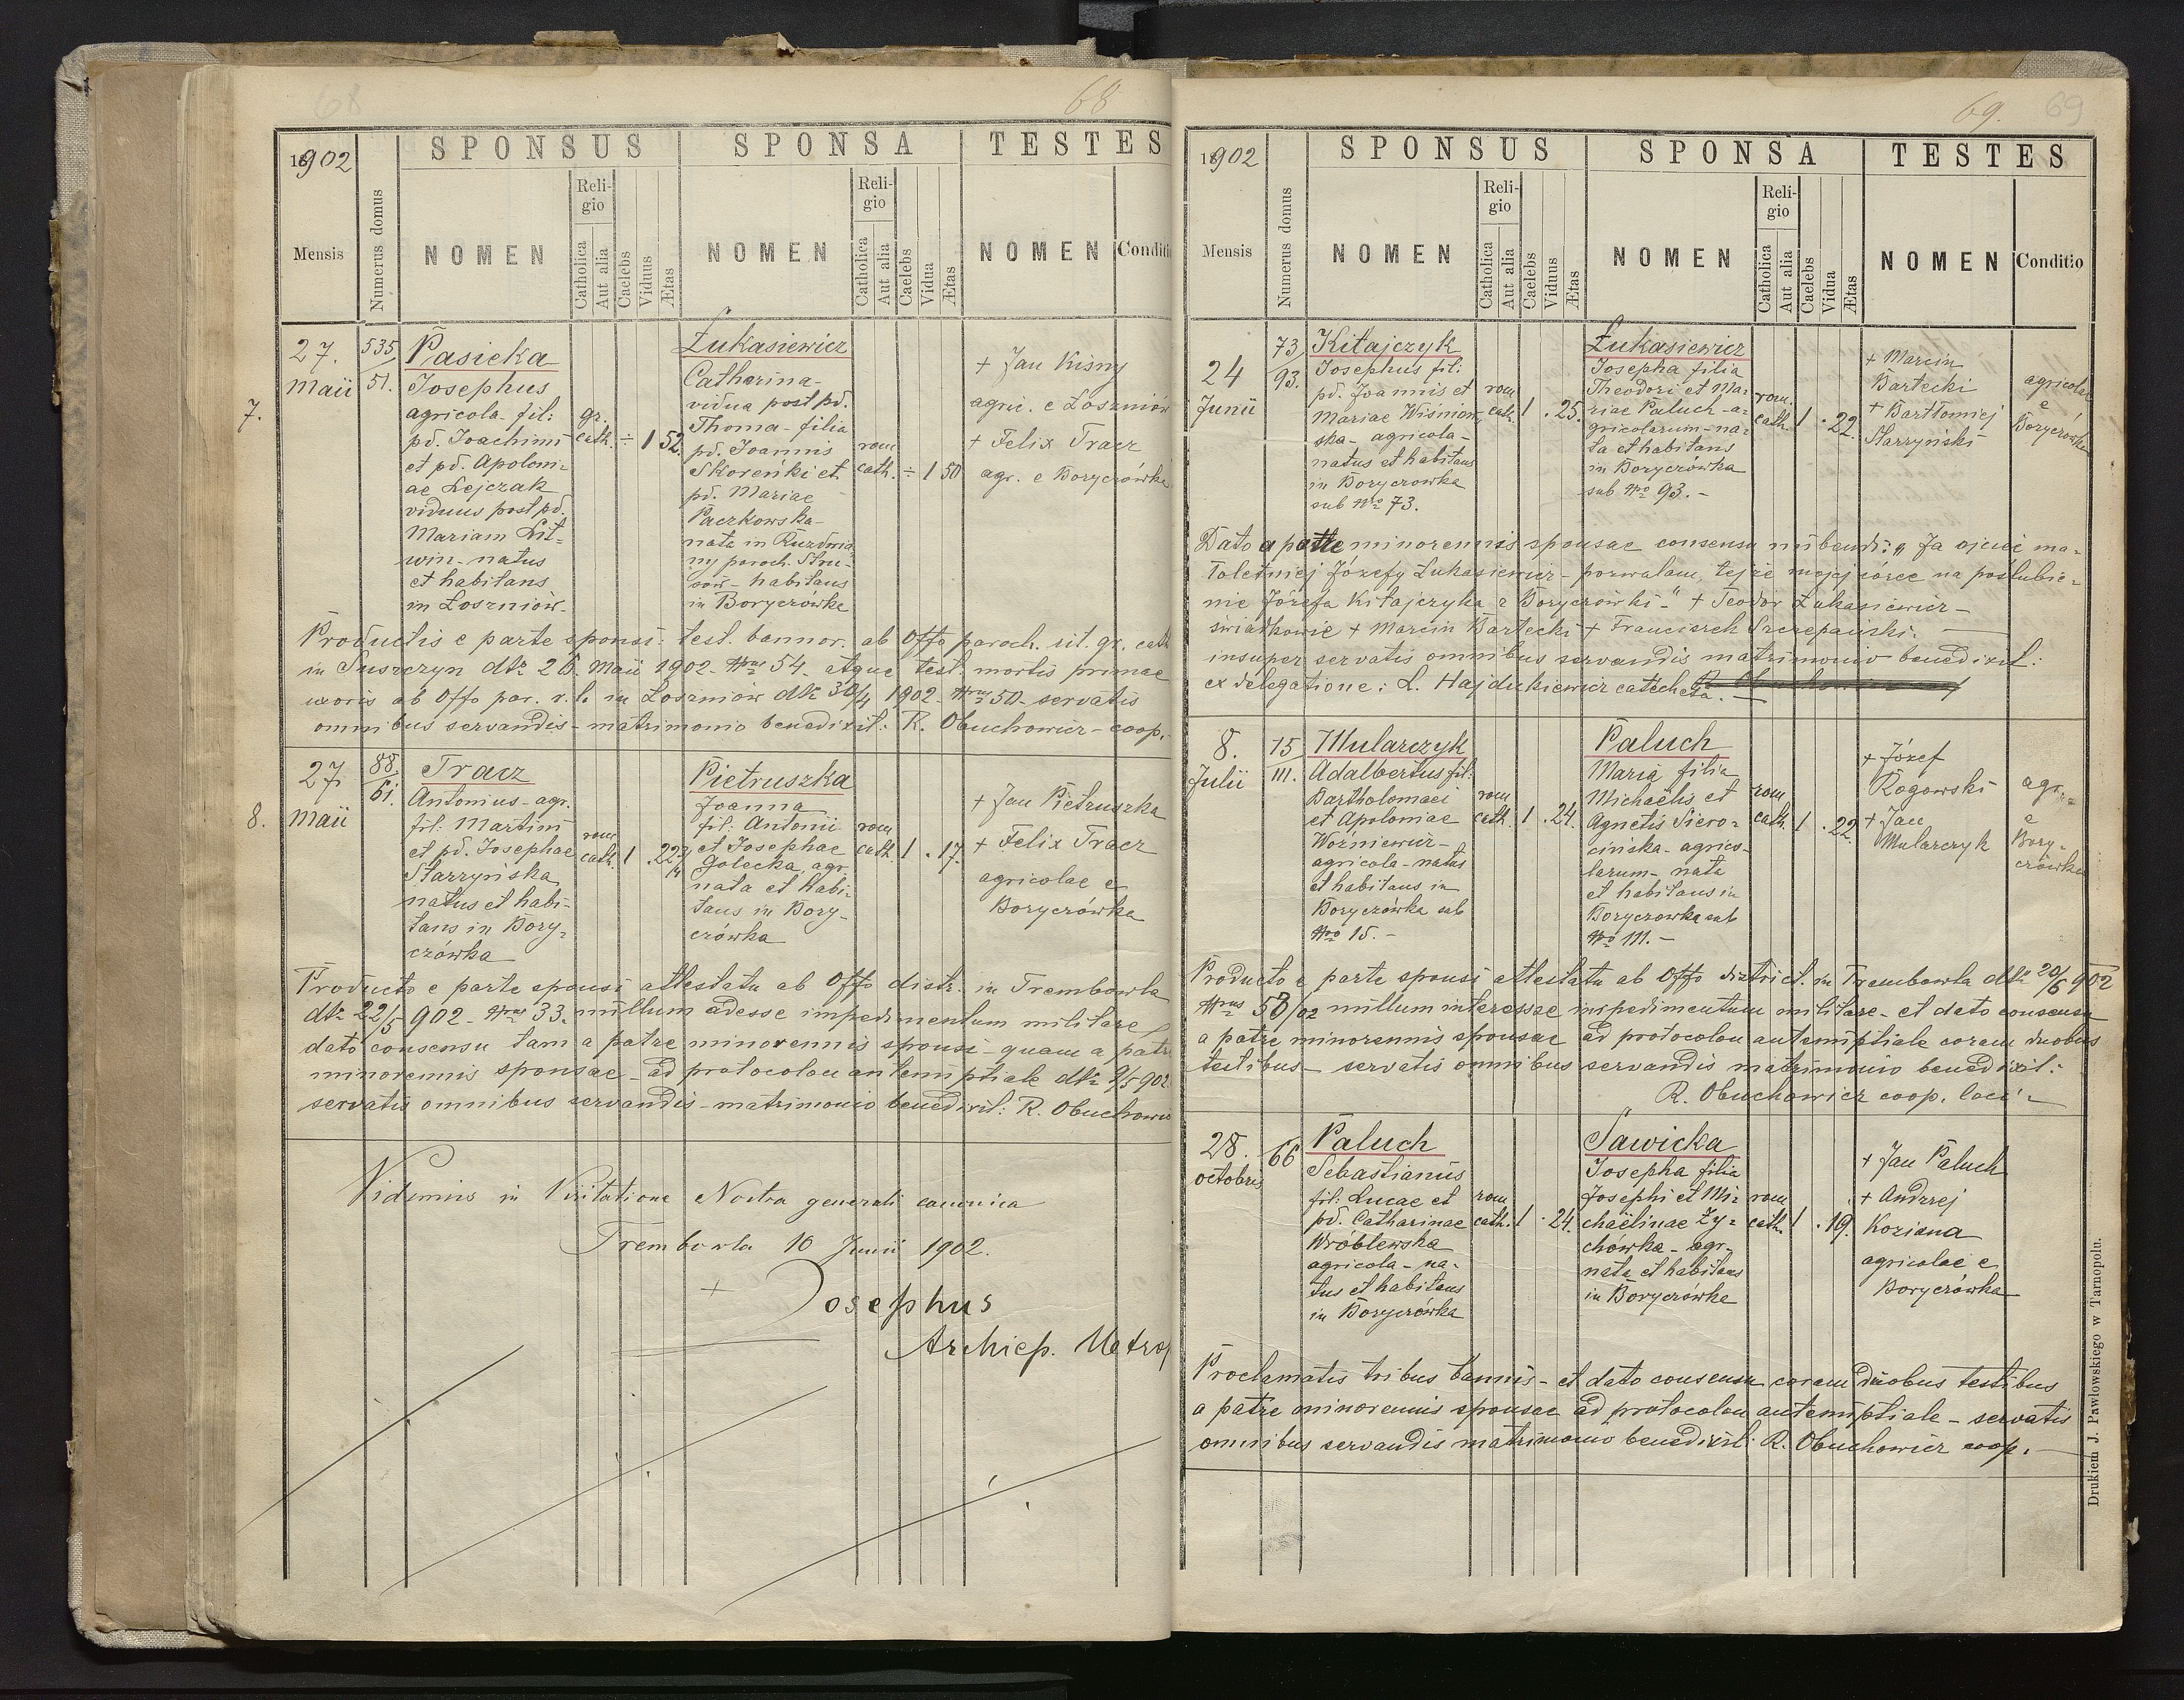 68
68
1902
SPONSUS
SPONSA
TESTES
Mensis
Numerus domus
NOMEN
Religio
Catholica
Aut alia
Caelebs
Viduus
Ætas
NOMEN
Religio
Catholica
Aut alia
Caelebs
Vidua
Ætas
NOMEN
Conditi
7.
27.
Maii
535
51.
Pasieka
Josephus
agricola - fil:
pd. Joachimi
et pd. Apoloni=
ae Lejczak
viduus post pd.
Mariam Lit=
win - natus
et habitans
in Łoszniów.
gr.
cath. ÷ 1 52.
Łukasiewicz
Catharina -
vidua post pd.
Thoma - filia
pd. Joannis
Skoreńki et
pd. Mariae
Paczkowska -
nata in Ruzdwia
ny paroch. Stru-
sów - habitans
in Boryczówka
rom.
cath. ÷ 1 50
+ Jan Kiśny
agric. e Łoszniów
+ Felix Tracz
agr. e Boryczówka
Productis e parte sponsi: test. bannor. ab Offo paroch. rit. gr. cath
in Suszczyn dto 26. Maii 1902. Nrus 54. atque test. mortis primae
uxoris ab Offo par. r. l. in Łoszniów dto 30/4 1902 - Nrus 50 - servatis
omnibus servandis - matrimonio benedixit: R. Obuchowicz - coop.
8.
27
Maii
88
61.
Tracz
Antonius - agr.
fil: Martini
et pd. Josephae
Starzyńska
natus et habi-
tans in Bory=
czówka
rom.
cath. 1 . 22
Pietruszka
Joanna
fil: Antonii
et Josephae
Golecka, agr.
nata et habi=
tans in Bory-
czówka
rom
cath. 1 . 17.
+ Jan Pietruszka
+ Felix Tracz
agricolae e
Boryczówka
Producto e parte sponsi attestatu ab Offo distr. in Trembowla
dto 22/5 902 - Nrus 33. nullum adesse impedimentum militare
dato consensu tam a patre minorennis sponsi - quam a patre
minorennis sponsae - ad protocolon antenuptiale dto 9/5 902
servatis omnibus servandis - matrimonio benedixit: R. Obuchowicz
Vidimus in Visitatione Nostra generali canonica
Trembowla 10 Junii 1902.
+ Josephus
Archiep. Metrop
69.
69
1902
SPONSUS
SPONSA
TESTES
Mensis
Numerus domus
NOMEN
Religio
Catholica
Aut alia
Caelebs
Viduus
Ætas
NOMEN
Religio
Catholica
Aut alia
Caelebs
Vidua
Ætas
NOMEN
Conditio
24
Junii
73
93.
Kitajczyk
Josephus fil:
pd. Joannis et
Mariae Wiśniow
ska - agricola -
natus et habitans
in Boryczowka
sub Nro 73.
rom
cath. 1 . 25.
Łukasiewicz
Josepha filia
Theodori et Ma=
riae Paluch - a=
gricolarum - na=
ta et habitans
in Boryczówka
sub Nro 93. -
rom.
cath. 1 . 22.
+ Marcin
Bartecki
+ Bartłomiej
Starzyński
agricolae
e
Boryczówka
Dato a patre minorennis sponsae consensu nubendi: „Ja ojciec ma=
łoletniej Józefy Łukasiewicz - pozwalam tejże mojej córce na poślubie=
nie Józefa Kitajczyka z Boryczówki -" + Teodor Łukasiewicz -
świadkowie + Marcin Bartecki + Franciszek Szczepański. -
insuper servatis omnibus servandis matrimonio benedixit:
ex delegatione: L. Hajdukiewicz catecheta.
8.
Julii
15
111.
Mularczyk
Adalbertus fil:
Bartholomaei
et Apoloniae
Woźniewicz -
agricola - natus
et habitans in
Boryczówka sub
Nro 15. -
rom
cath. 1 . 24.
Paluch
Maria filia
Michaëlis et
Agnetis Siero=
cińska - agrico-
larum - nata
et habitans in
Boryczowka sub
Nro 111. -
rom
cath. 1 . 22.
+ Józef
Rogowski
+ Jan
Mularczyk
agr.
e
Bory=
czówka
Producto e parte sponsi attestatu ab Offo district. in Trembowla dto 20/6 902
Nrus 58/02 nullum interesse impedimentum militare - et dato consensu
a patre minorennis sponsae ad protocolon antenuptiale coram duobus
testibus - servatis omnibus servandis matrimonio benedixit:
R. Obuchowicz coop. loci -
28.
octobris
66
Paluch
Sebastianus
fil: Lucae et
pd. Catharinae
Wróblewska
agricola - na-
tus et habitans
in Boryczówka
rom
cath. 1 . 24.
Sawicka
Josepha filia
Josephi et Mi=
chaëlinae Zy=
chówka - agr.
nata et habitans
in Boryczówka
rom
cath. 1 . 19.
+ Jan Paluch
+ Andrzej
Koziana
agricolae e
Boryczówka
Proclamatis tribus bannis - et dato consensu coram duobus testibus
a patre minorennis sponsae ad protocolon antenuptiale - servatis
omnibus servandis matrimonio benedixit: R. Obuchowicz coop. -
Drukiem J. Pawłowskiego w Tarnopolu.